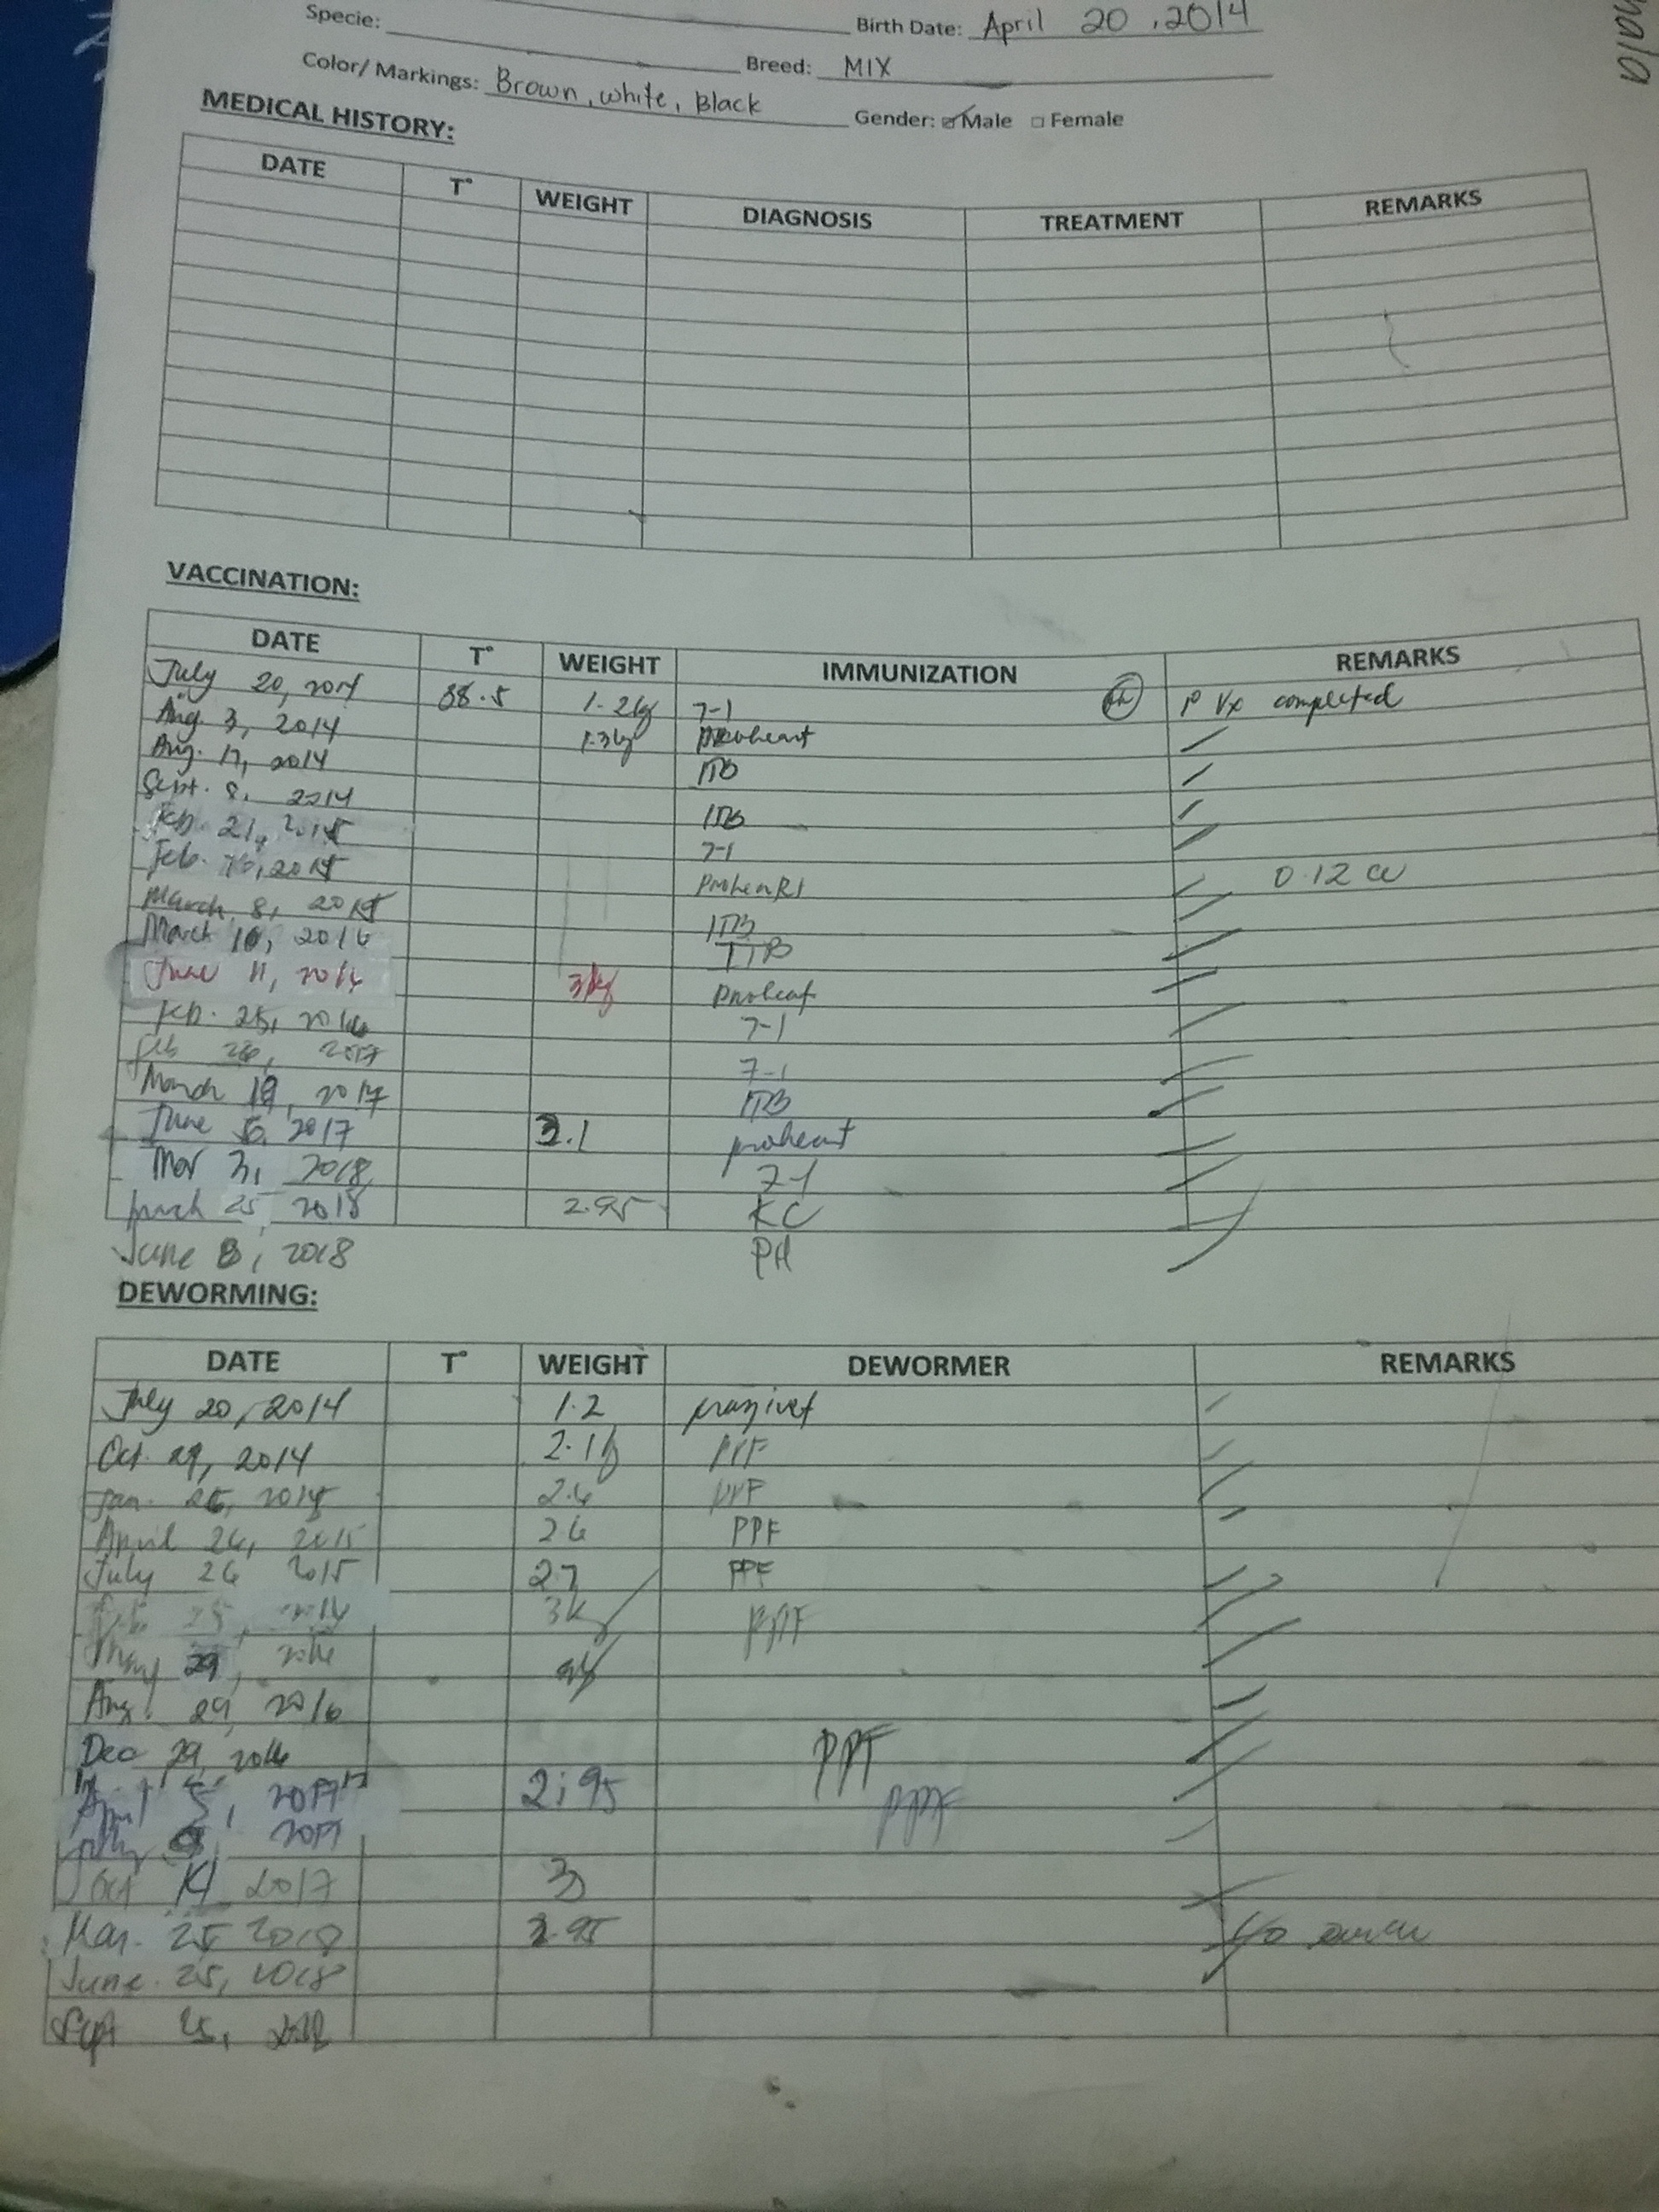 Specie: Birth Date: April 20, 2014
Color/ Markings: Brown, white, Black Breed: MIX
Gender: Male Female
MEDICAL HISTORY:
DATE T° WEIGHT DIAGNOSIS TREATMENT REMARKS
VACCINATION:
DATE T° WEIGHT IMMUNIZATION REMARKS
July 20, 2014 38.5 1.2kg 7-1 Vx completed
Aug. 3, 2014 1.3kg proheart
Aug. 17, 2014 ITB
Sept. 8, 2014 ITB
Feb. 21, 2015 7-1
Feb. 2015 0.12 cc
March 8, 2015 ITB
March 10, 2016 ITB
June 11, 2016 3kg
Feb. 25, 2016 7-1
Feb 26, 2017 7-1
March 19, 2017 ITB
June 5, 2017 3.1 proheart
Mar 3, 2018 7-1
March 25, 2018 2.95 KC
June 8, 2018 PH
DEWORMING:
DATE T° WEIGHT DEWORMER REMARKS
July 20, 2014 1.2 prazivet
Oct. 29, 2014 2.1kg PPF
Jan. 2015 2.6 PPF
April 26, 2015 2.6 PPF
July 26 2015 2.7 PPF
3kg PPF
May 29, 2016
Aug. 29, 2016
Dec 29, 2016 PPF
April 5, 2017 2.95 PPF
July 2017
Oct 2017 3
Mar. 25 2018 2.95
June 25, 2018
Sept 25, 2018